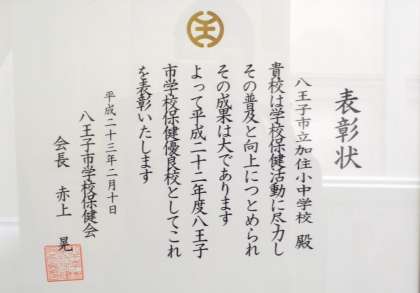 表彰状
八王子市立加住小中学校 殿
貴校は学校保健活動に尽力し
その普及と向上につとめられ
その成果は大であります
よって平成二十二年度八王子
市学校保健優良校としてこれ
を表彰いたします
平成二十三年二月十日
八王子市学校保健会
会長 赤上 晃